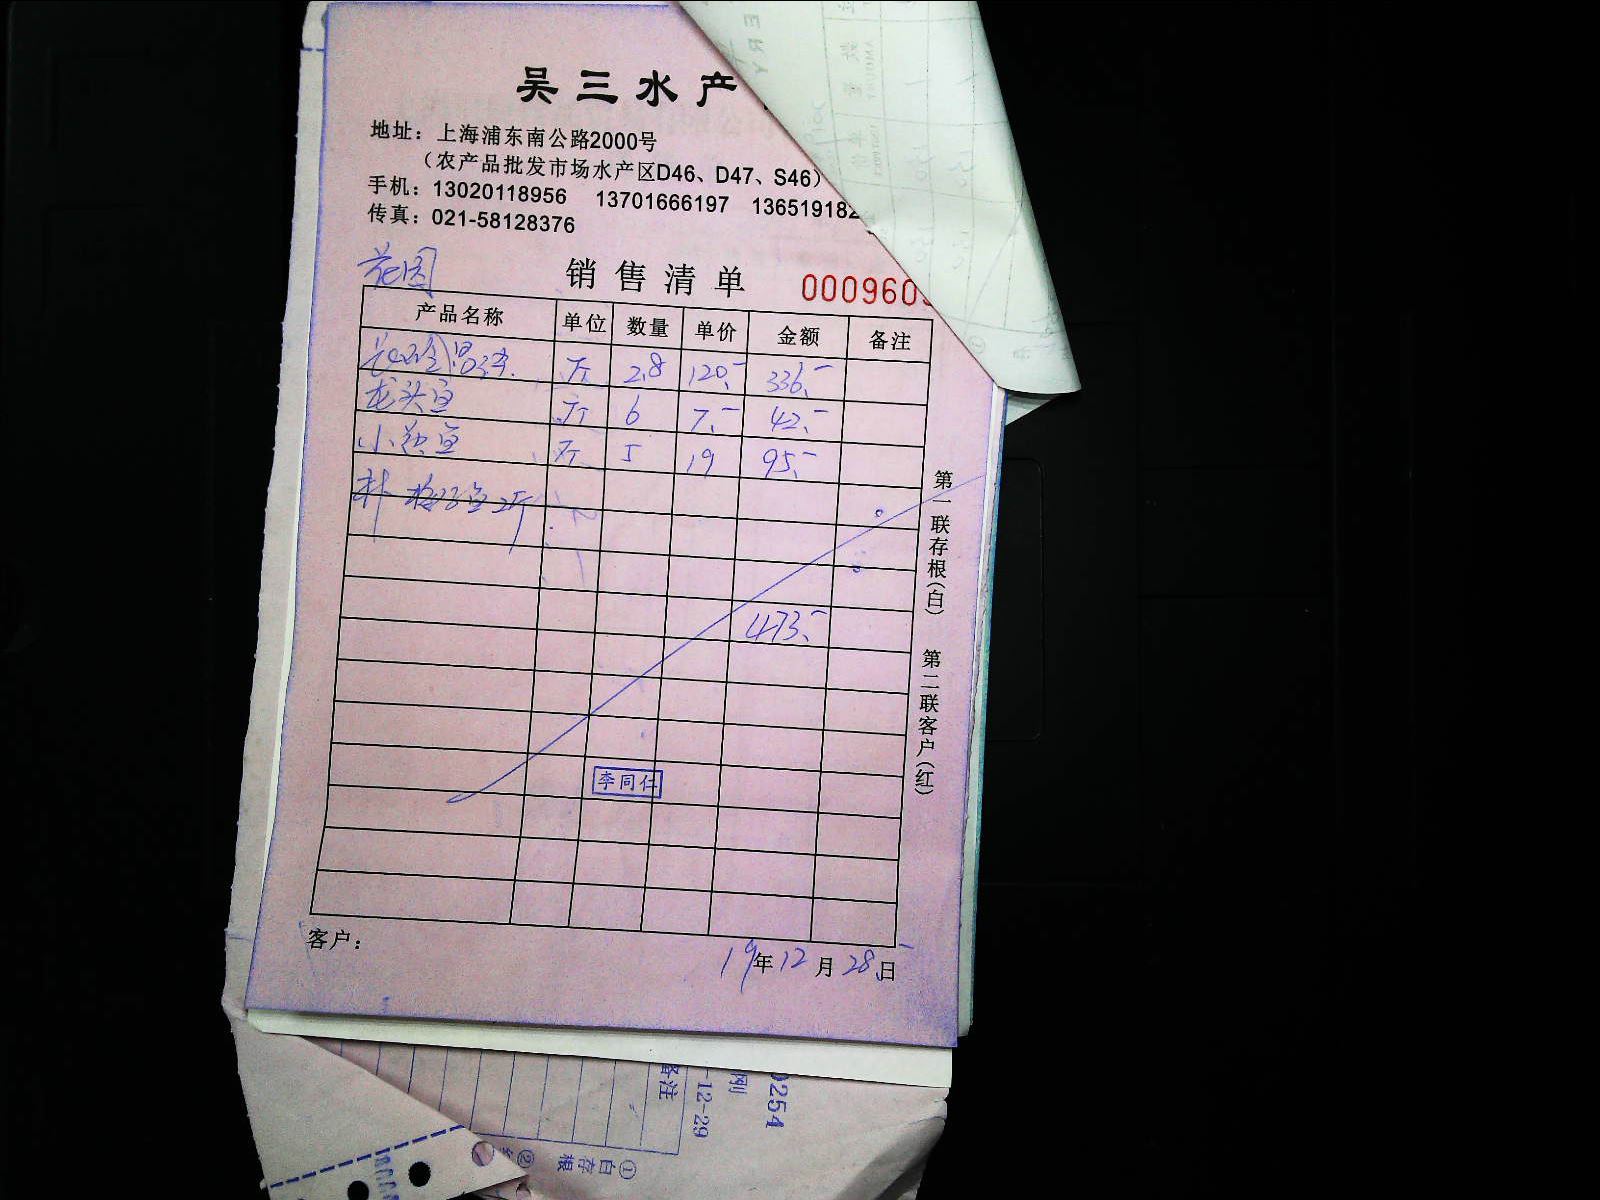 吴三水产
地址：上海浦东南公路2000号
（农产品批发市场水产区D46、D47、S46）
手机：13020118956 13701666197 136519182
传真：021-58128376
花园
销售清单 000960
产品名称 单位 数量 单价 金额 备注
斤 2.8 120.- 336.-
龙头鱼 斤 6 7.- 42.-
小黄鱼 斤 5 19 95.-
补 鱼2斤
473.-
李同仁
第一联存根(白) 第二联客户(红)
客户：
19年12月28日
0254
刚
-12-29
备注
①白存根 ②